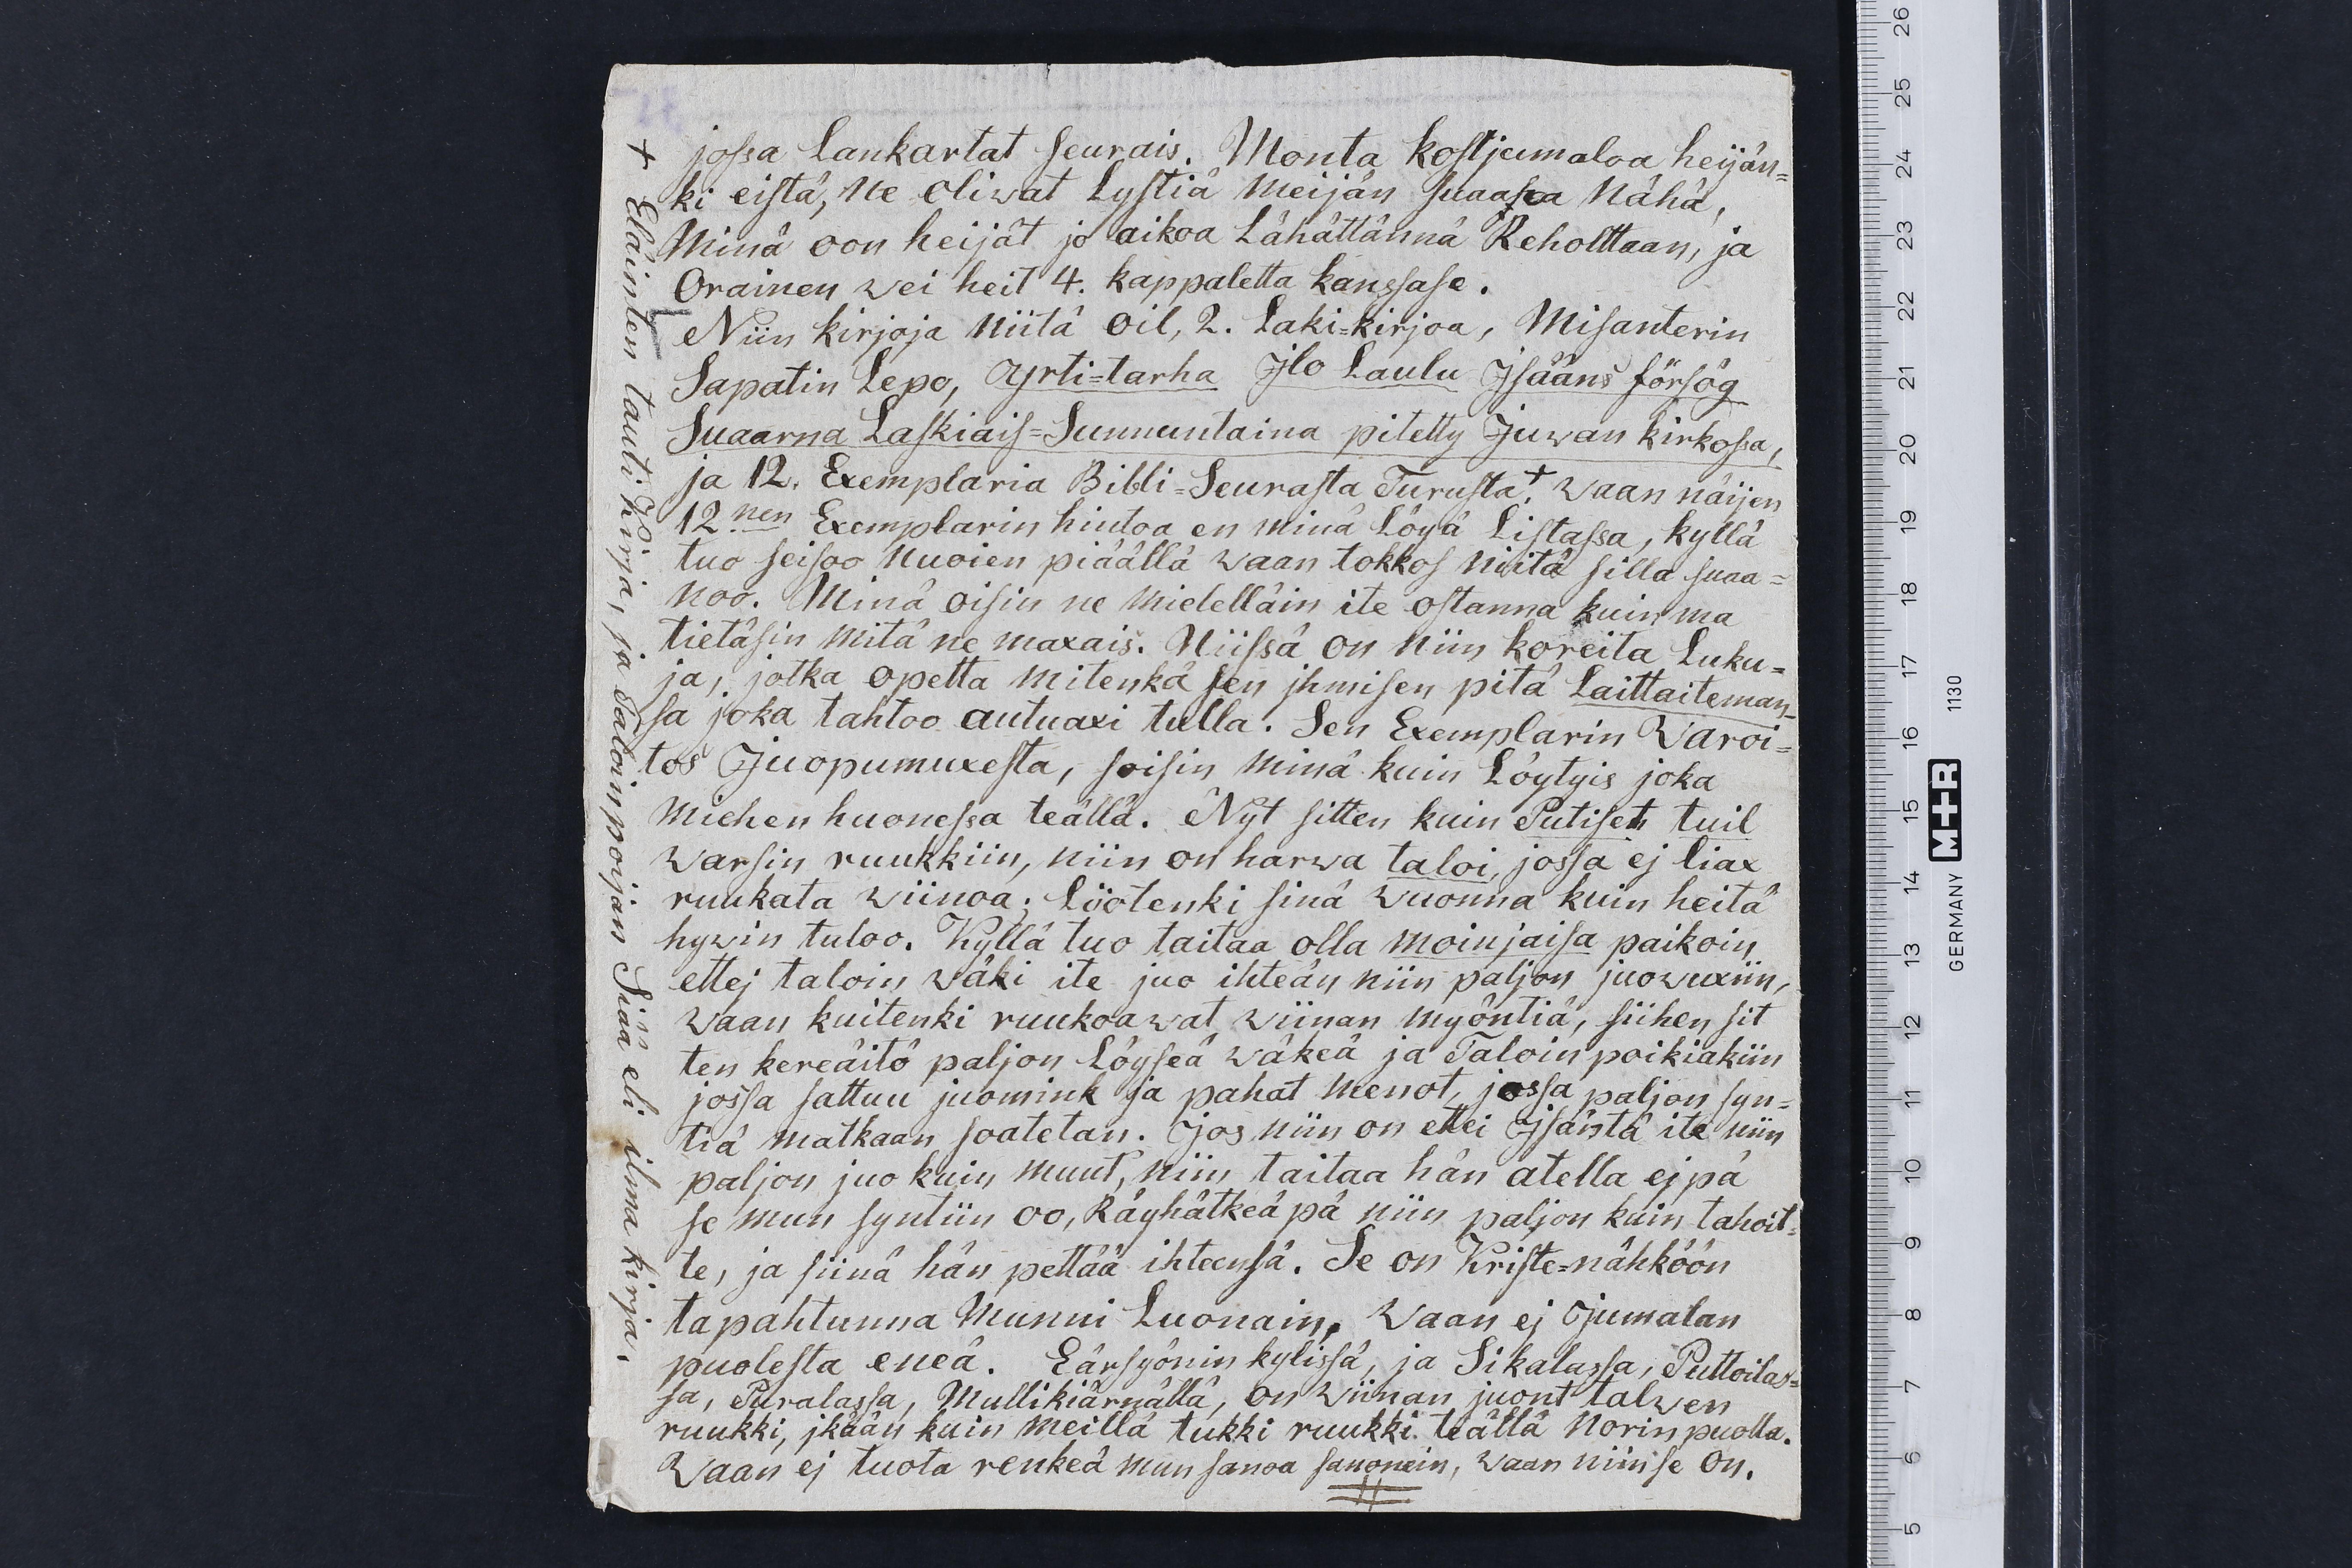 jossa Lankartat seurais. Monta kostjumaloa heijän=
ki eistä, Ne oliwat Lystiä Meijän suaaha Nähä,
Minä oon heijät jo aikoa Lähättännä Reholttaan, ja
Orainen wei heit 4. kappaletta kanssase.
Niin kirjoja Niitä oil, 2. Laki=kirjoa, Misanterin
Sapatin Lepo, Yrti=tarha Jlo Laulu Jsääns försög
Suaarna Laskiais=Sunnuntaina pitetty Juwan kirkossa,
ja 12. Exemplaria Bibli=Seurasta Turusta+. waan näijen
12nen Exemplarin hintoa en minä Löyä Listassa, kyllä
tuo seisoo Nuoien piäällä waan tokkos Niitä sillä suaa=
noo. Minä oisin ne Mielelläin ite ostanna kuin ma
tietäsin mitä ne maxais. Niissä on Niin koreita Luku=
ja, jotka opetta Mitenkä sen jhmisen pitä Laittaiteman=
sa joka tahtoo autuaxi tulla. Sen Exemplarin Waroi=
tos Juopumuxesta, soisin Minä kuin Löytyis joka
Miehen huonessa teällä. Nyt sitten kuin Putiset tuil
warsin ruukkiin, niin on harwa taloi, jossa ej liax
ruukata wiinoa; Löötenki sinä wuonna kuin heitä
hywin tuloo. Kyllä tuo taitaa olla moinjaisa paikoin,
ettej taloin wäki ite juo ihteän niin paljon juowuxiin,
waan kuitenki ruukoawat wiinan myöntiä, siihen sit
ten kereäitö paljon Löyseä wäkeä ja Taloin poikiakiin
jossa sattuu juomink ja pahat menot, jossa paljon syn=
tiä matkaan soatetan. Jos niin on ettei Jsäntä ite niin
paljon juo kuin muut, niin taitaa hän atella ej pä
se mun syntiin oo, Räyhätkeä pä niin paljon kuin tahoit=
te, ja siinä hän pettää ihteensä. Se on Kriste=nähköön
tapahtunna Munni Luonain, waan ej Jumalan
puolesta eneä. Eärsyönin kylissä, ja Sikalassa, Puttoilas=
sa, Puralassa, Mullikiärnällä, on wiinan juont talwen
ruukki, jkään kuin meillä tukki ruukki teällä Norinpuolla.
Waan ej tuota renkeä mun sanoa sanonein, waan niin se on.
+ Eläinten tauti kirja, ja Taloinpoijan Siaa eli ilma kirja.